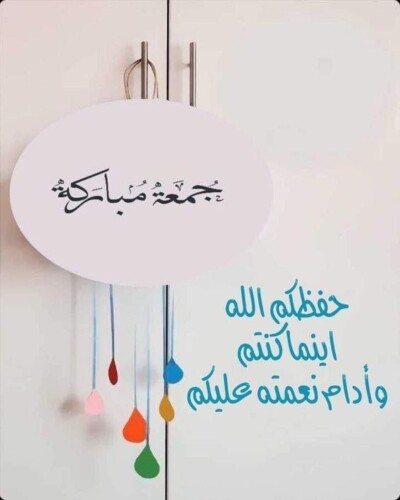 جمعة مباركة
حفظكم الله
اينما كنتم
وأدام نعمته عليكم